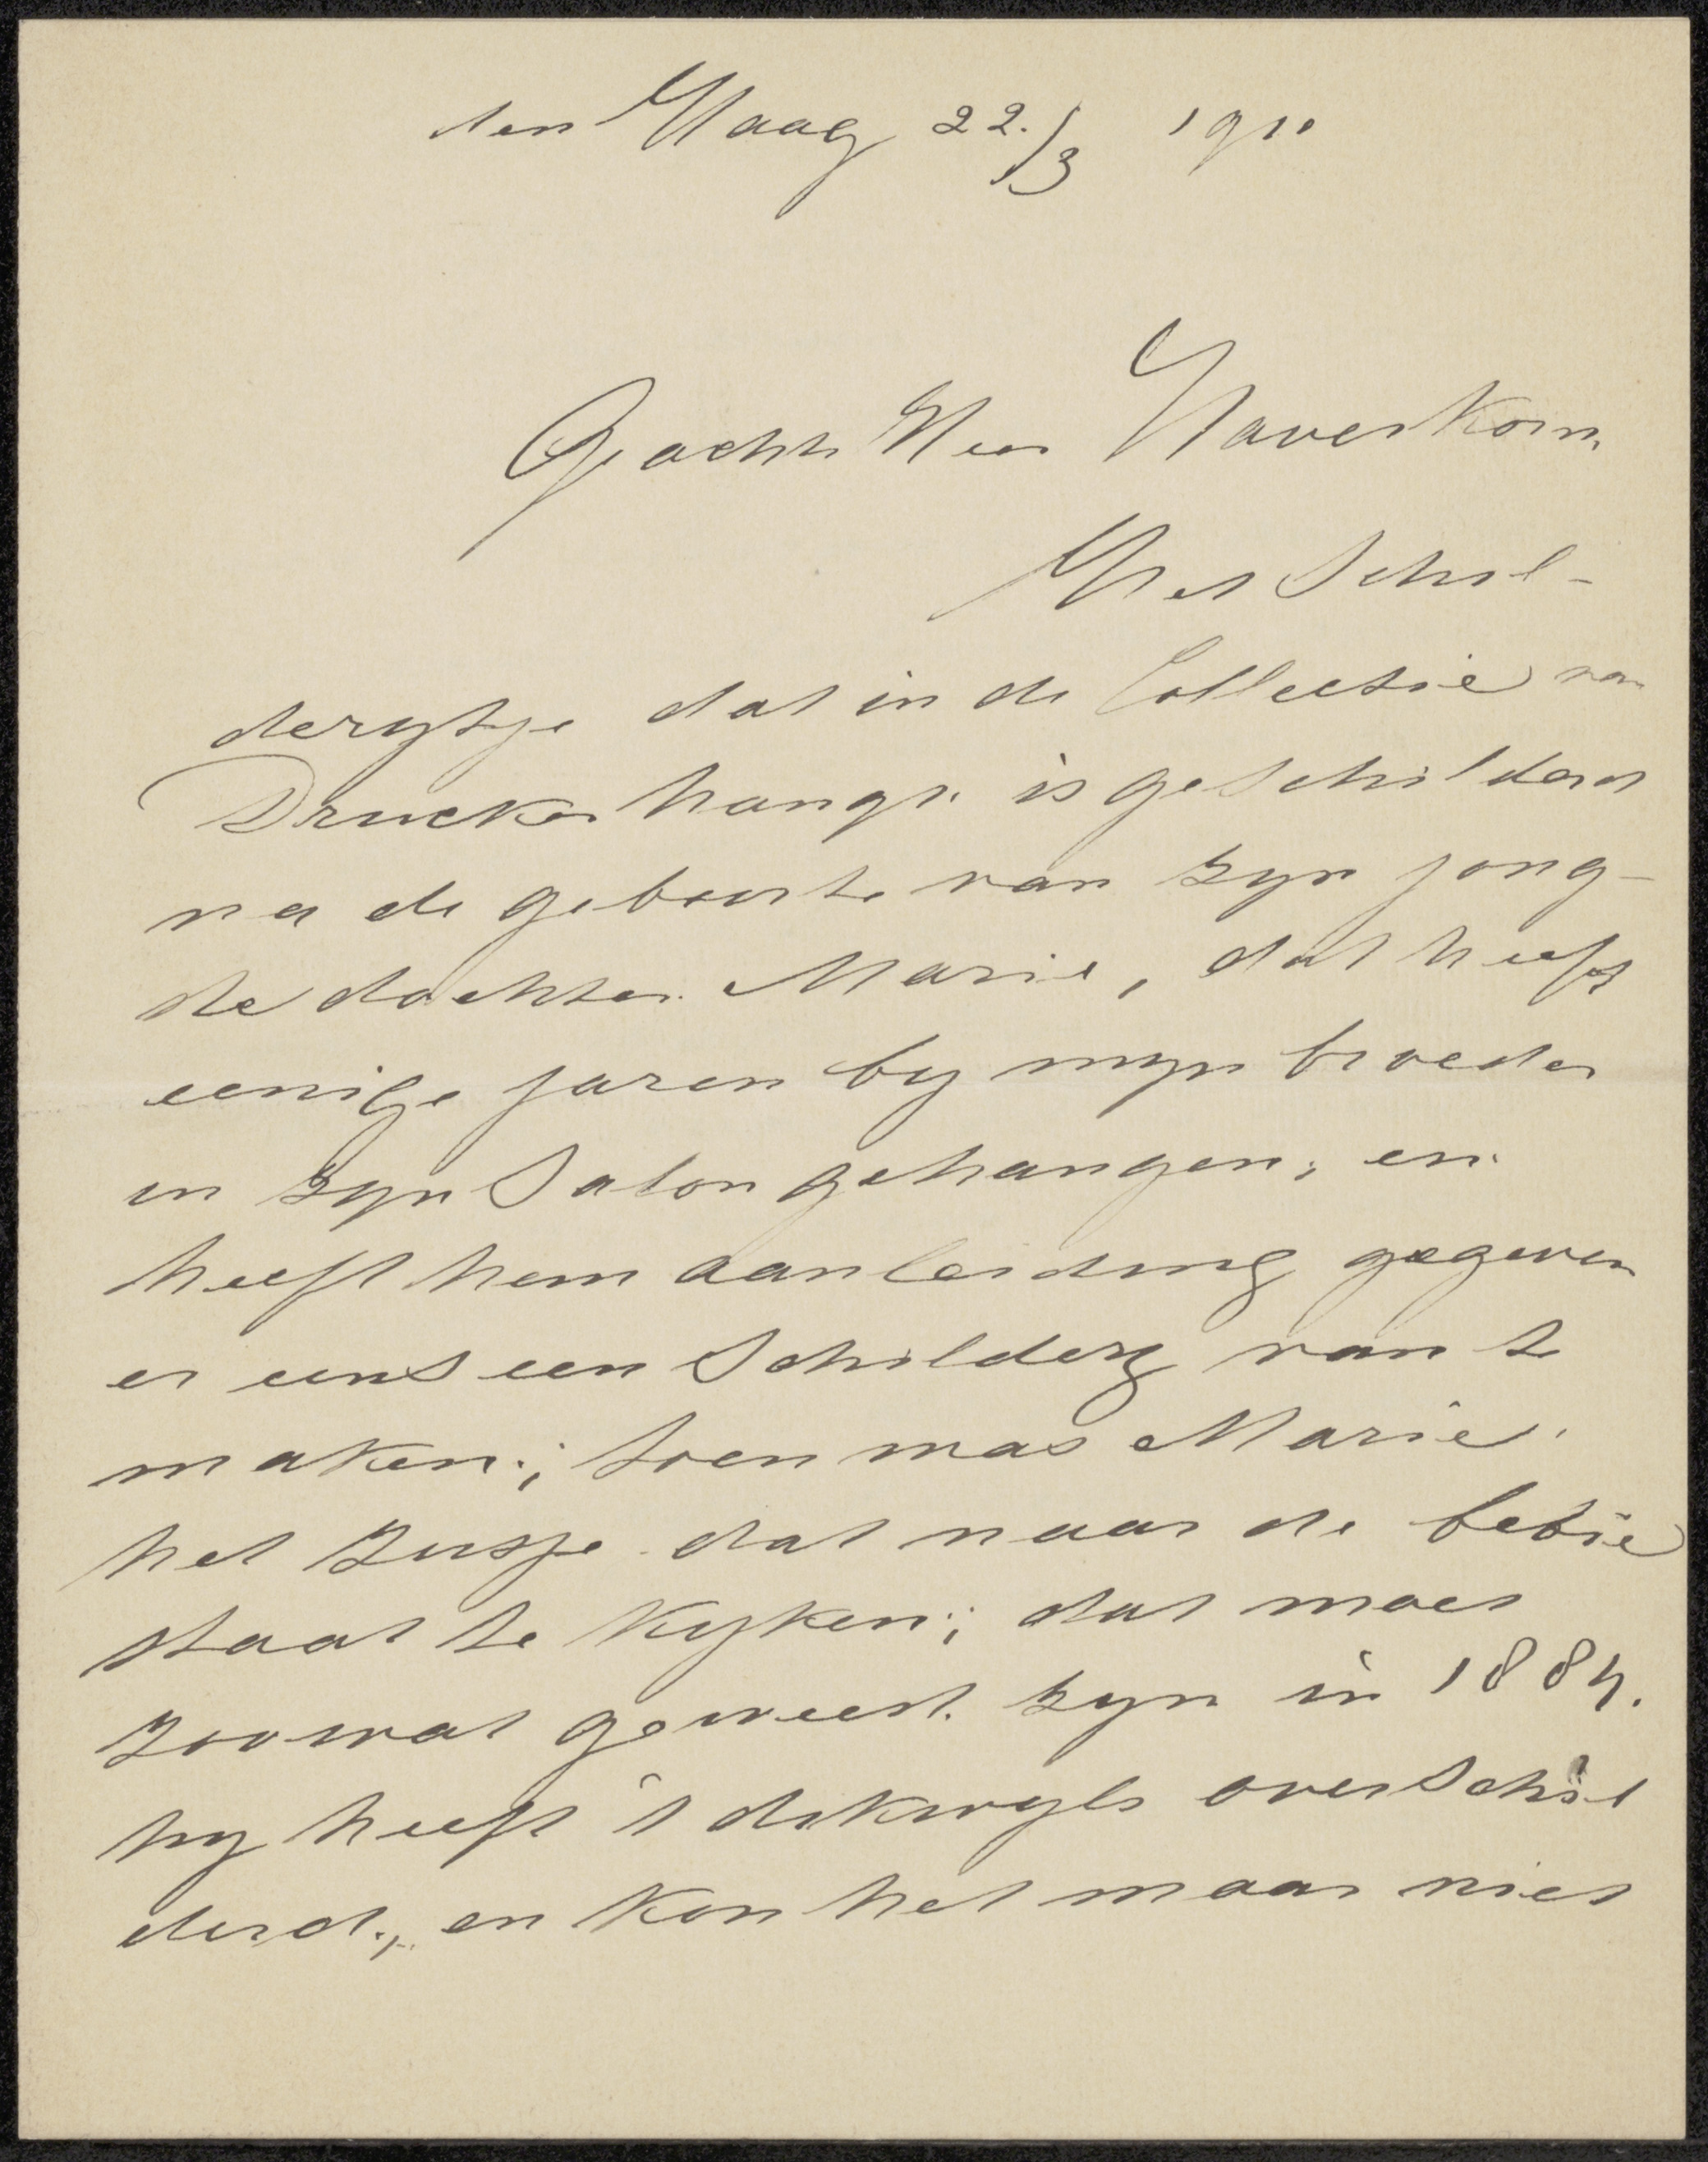 den Haag 22./3 1910
Geachte Heer Haverkorn.
Het Schil-
derytje dat in de Collectie van
Drucker hangt. is geschilderd
na de geboorte van zyn jong-
ste dochter Marie, dat heeft
eenige jaren by myn broeder
in zyn Salon gehangen, en
heeft hem aanleiding gegeven
er eens een Schildery van te
maken; toen was Marie
het zusje dat naar de bebie
staat te kyken; dat moet
zoowat geweest zyn in 1884.
hy heeft 't dikwyls overschil
derd., en kon het maar niet